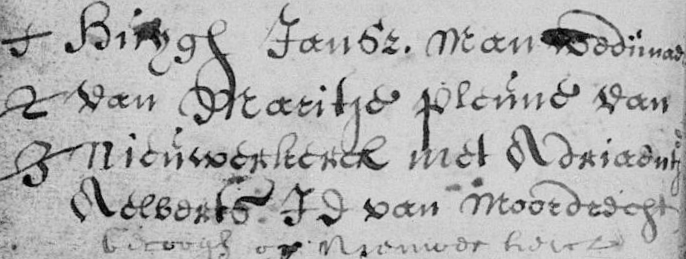 + Huijgh Jansz. Man Weduwnaer
2 van Maritje Pleune van
3 Nieuwerkerck met Adriaentje
Aelberts JD van Moordrecht
op Nieuwerkerck